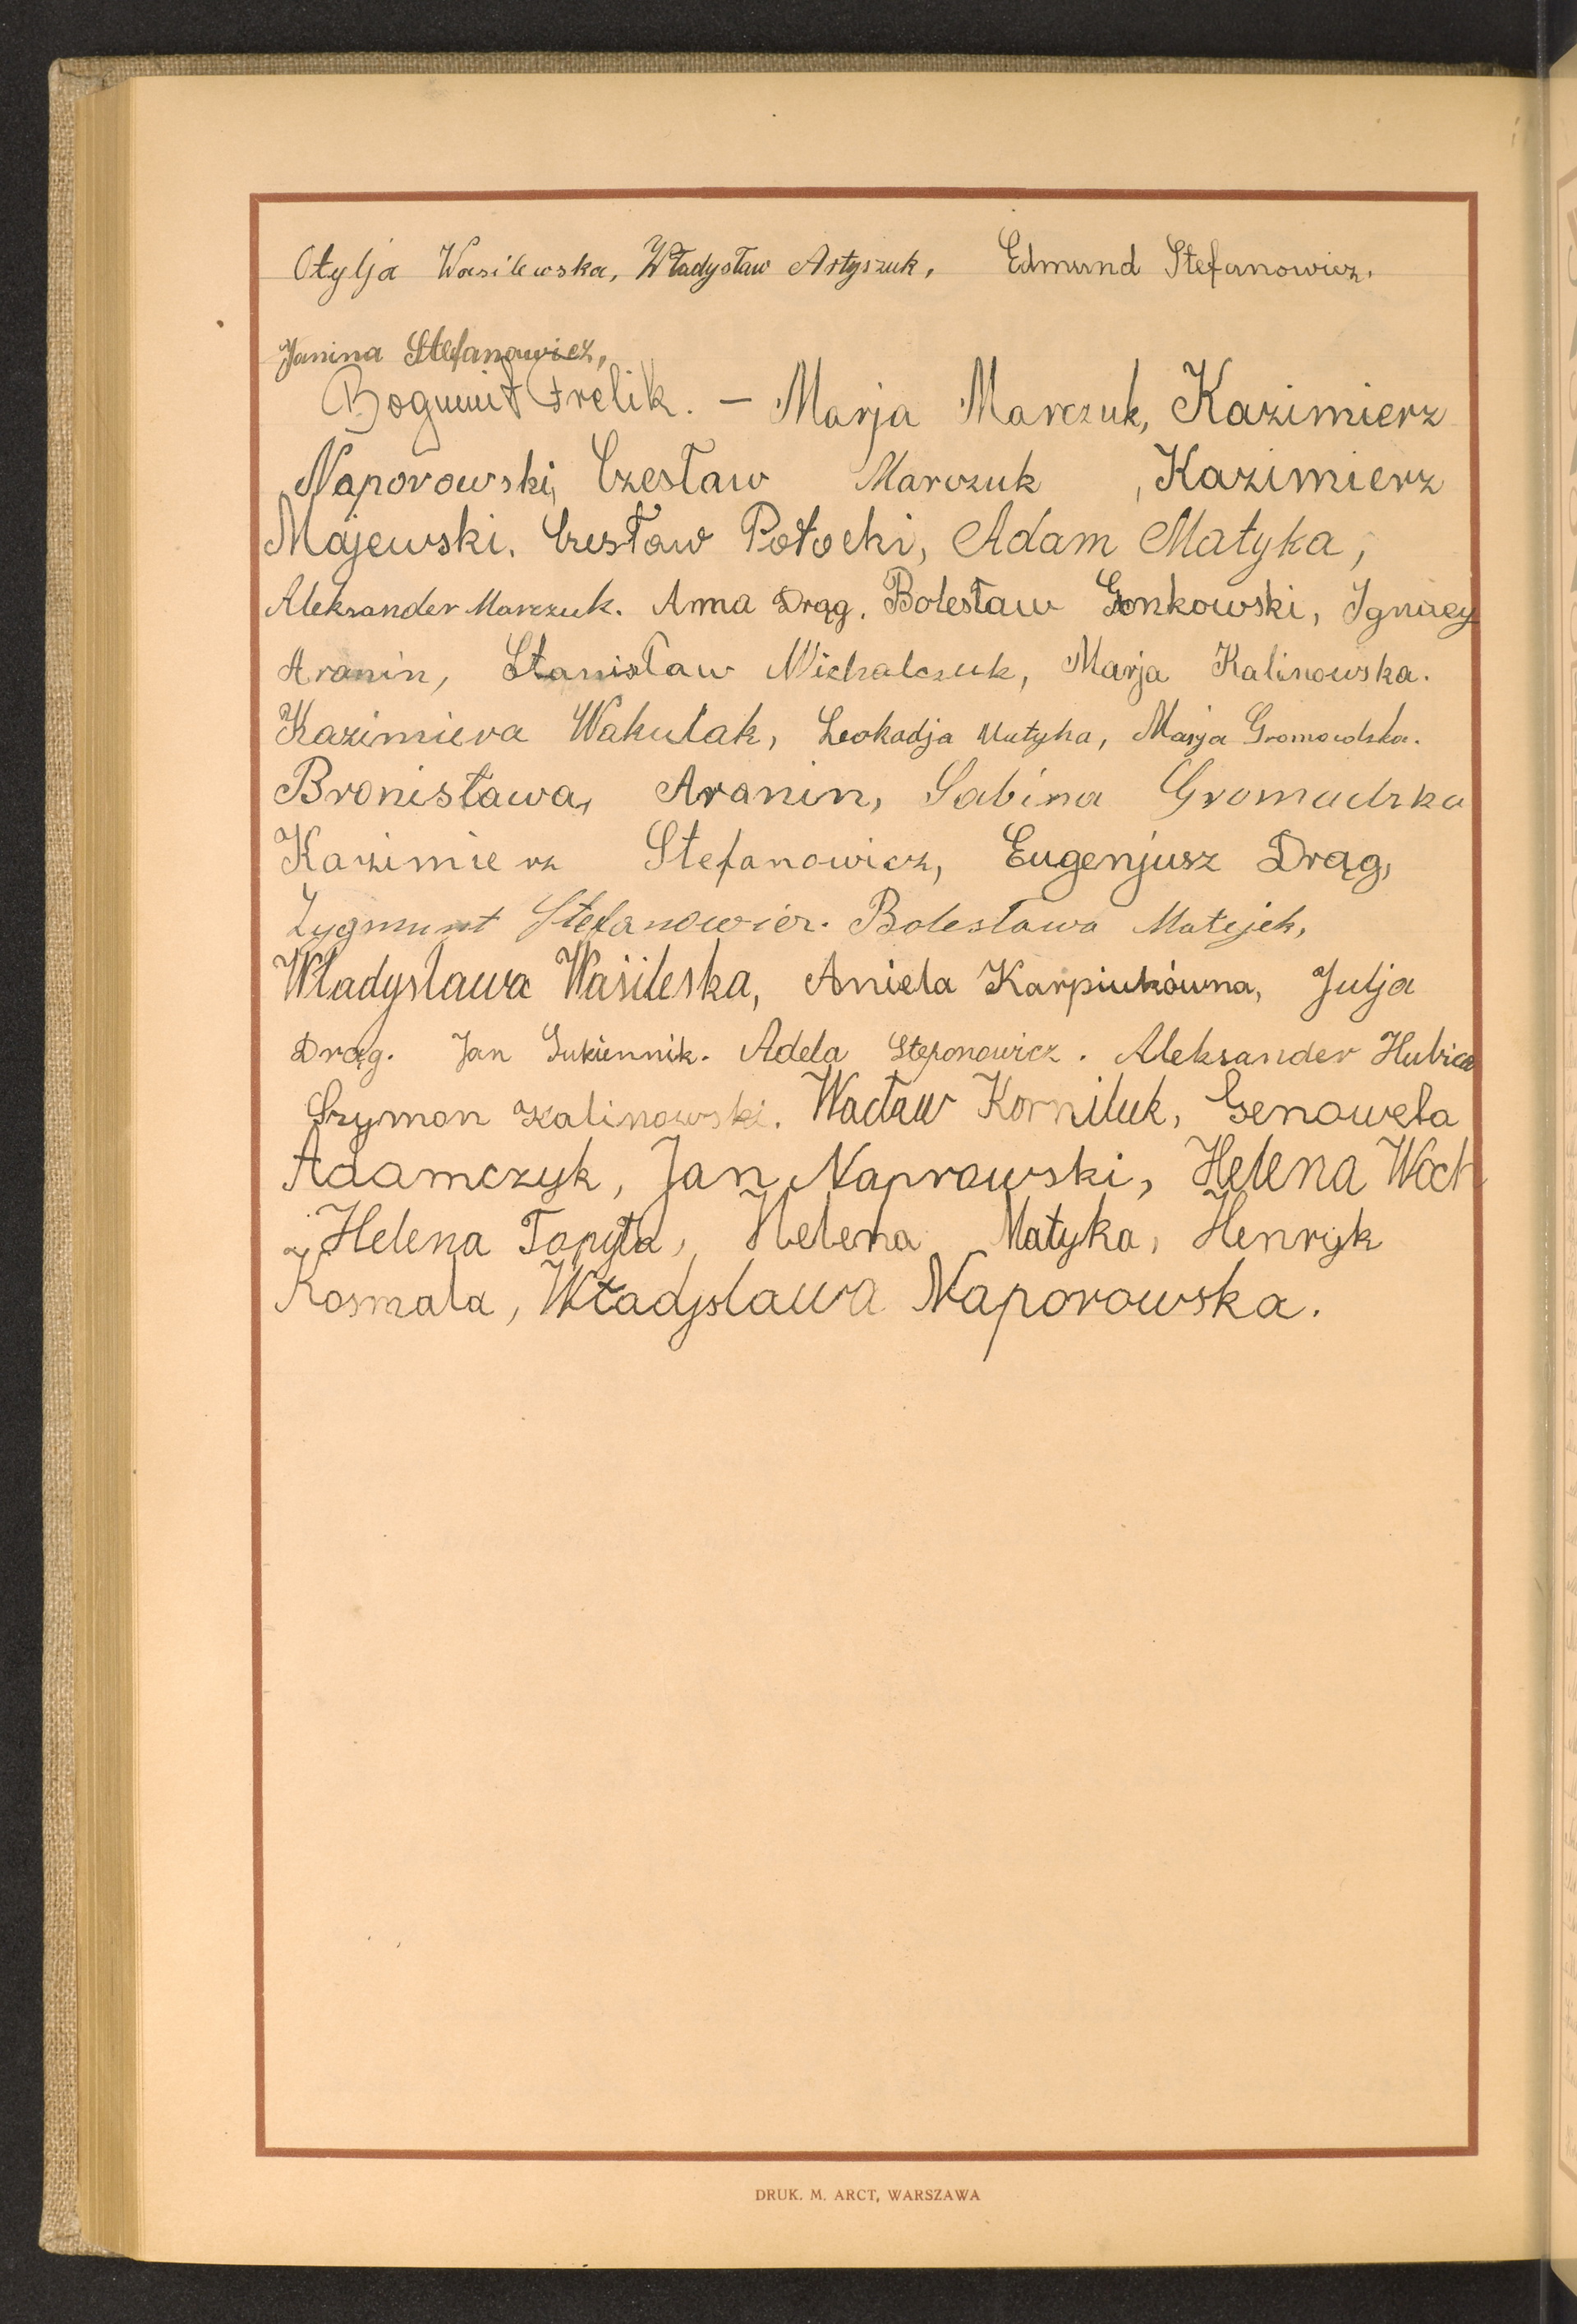 Otylja Wasilewska, Władysław Artyszuk, Edmund Stefanowicz.
Janina Stefanowicz,
Bogumił Frelik. — Marja Marczuk, Kazimierz
Naporowski, Czesław Marczuk, Kazimierz
Majewski. Czesław Potocki, Adam Matyka,
Aleksander Marczuk. Anna Drąg. Bolesław Gonkowski, Ignacy
Aranin, Stanisław Michalczuk, Marja Kalinowska.
Kazimiera Wakulak, Leokadja Matyka, Marja Gromadzka.
Bronisława, Aranin, Sabina Gromadzka
Kazimierz Stefanowicz, Eugenjusz Drąg,
Zygmunt Stefanowicz. Bolesława Matejek,
Władysława Waśileska, Aniela Karpiukówna, Julja
Drąg. Jan Sukiennik. Adela Steponowicz. Aleksander Hubica
Szymon Kalinowski. Wacław Korniluk, Genowefa
Adamczyk, Jan Naprowski, Helena Woch
Helena Topyła, Helena Matyka, Henryk
Kosmala, Władysława Naporowska.
DRUK. M. ARCT, WARSZAWA